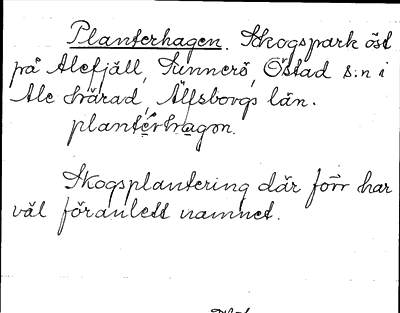 Planterhagen. Skogspark öst
på Alefjäll, Tunnerö, Östad s:n i
Ale härad, Älfsborgs län.
planterhagon.
Skogsplantering där förr har
väl föranlett namnet.